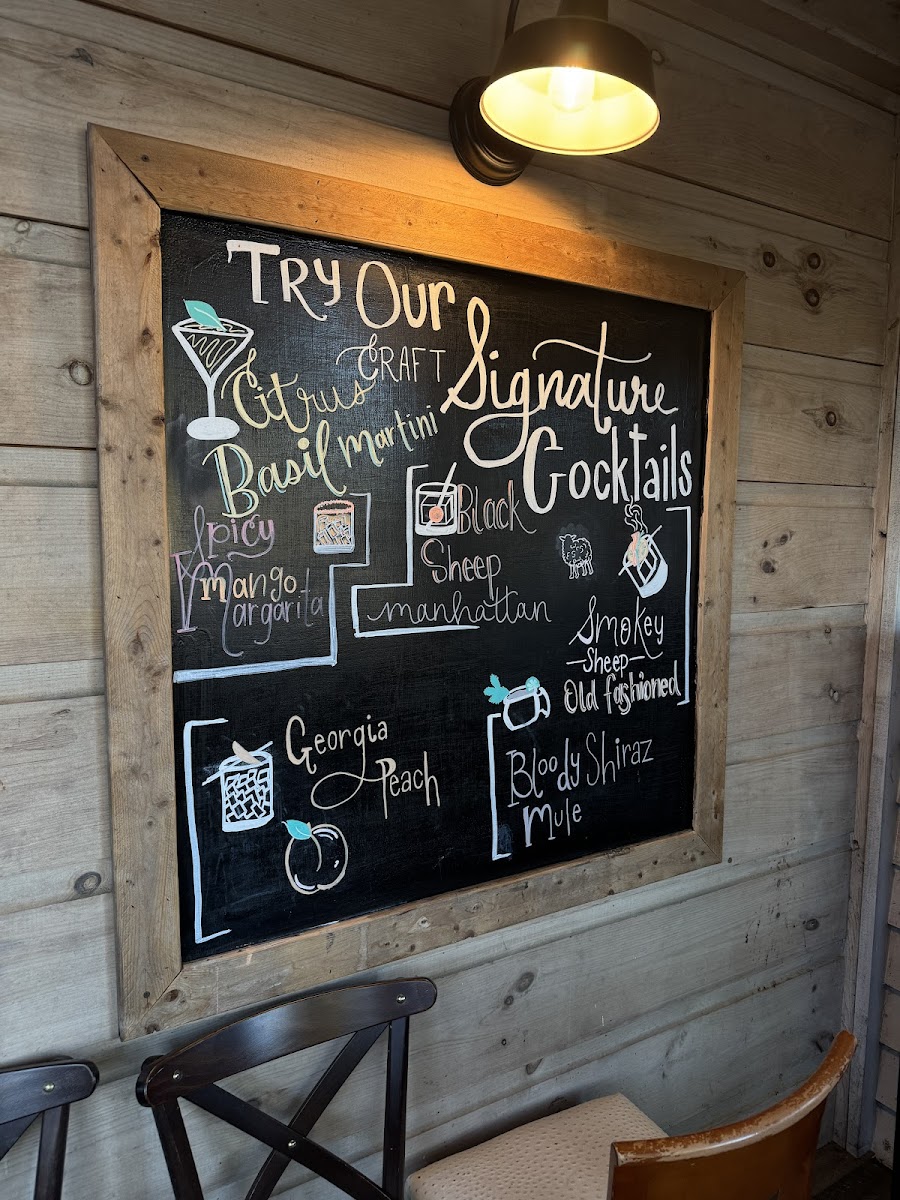 Try Our
Craft
Signature
Cocktails
Citrus
Basil Martini
Spicy
Mango
Margarita
Black
Sheep
manhattan
Smokey
-Sheep-
Old fashioned
Georgia
Peach
Bloody Shiraz
Mule